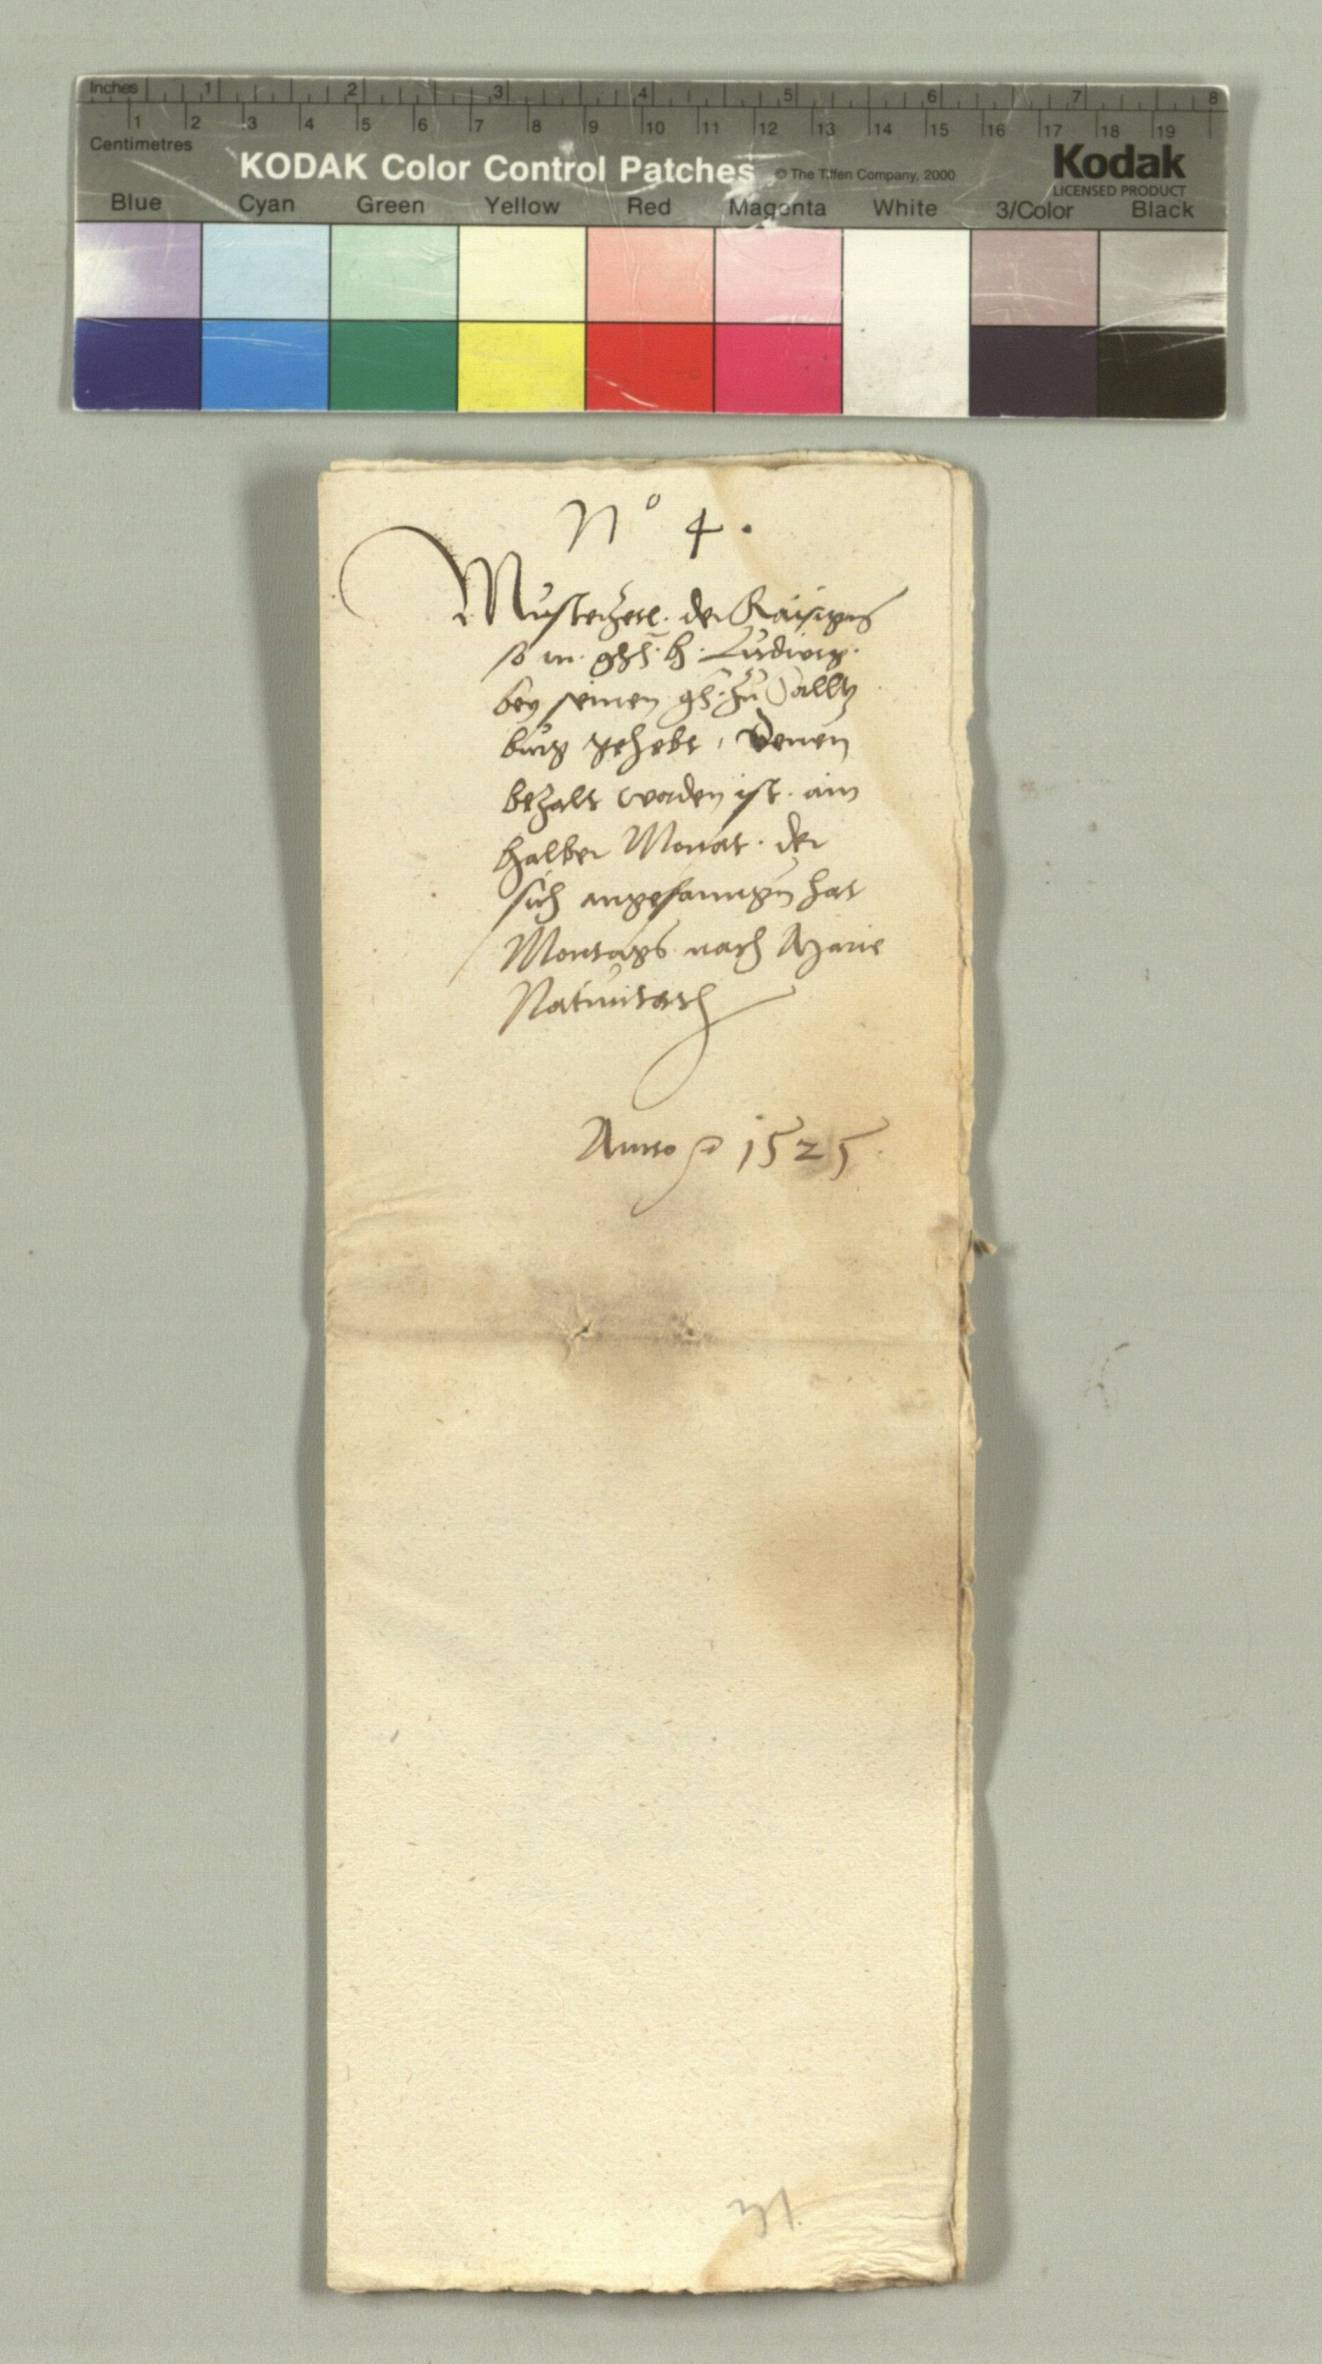 Inches 1 2 3 4 5 6 7 8
1 2 3 4 5 6 7 8 9 10 11 12 13 14 15 16 17 18 19
Centimetres
KODAK Color Control Patches © The Tiffen Company, 2000 Kodak
LICENSED PRODUCT
Blue Cyan Green Yellow Red Magenta White 3/Color Black
No 4.
Musterzetl. der Raisigen
so m. gh. h. Ludwig.
bey seinen gh. zu Salltz
burg gehebt, denen
bezalt worden ist. ain
halber Monat. der
sich angefanngen hat
Montags nach Marie
Natiuitatis
Anno 1525
31.